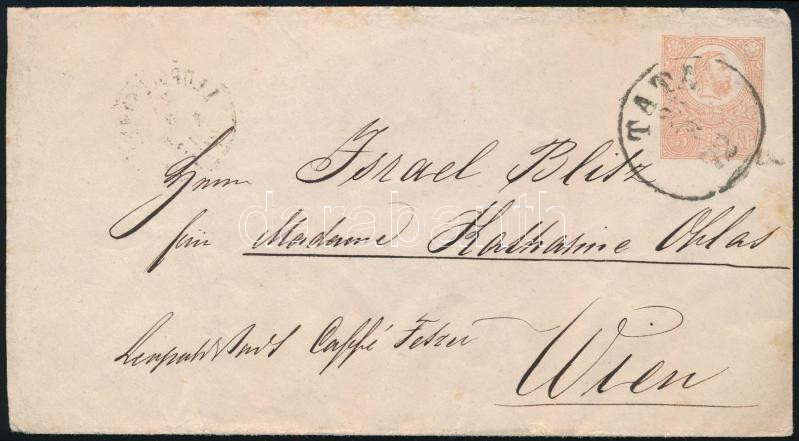 TATA
5
Herrn Israel Blitz
für Madame Katharine Ohlas
Leopoldstadt Caffé Fetzer
Wien
darabanth